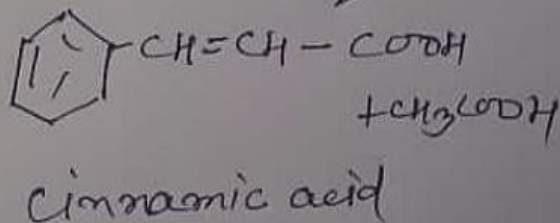 CH=CH-COOH
+CH3COOH
Cinnamic acid